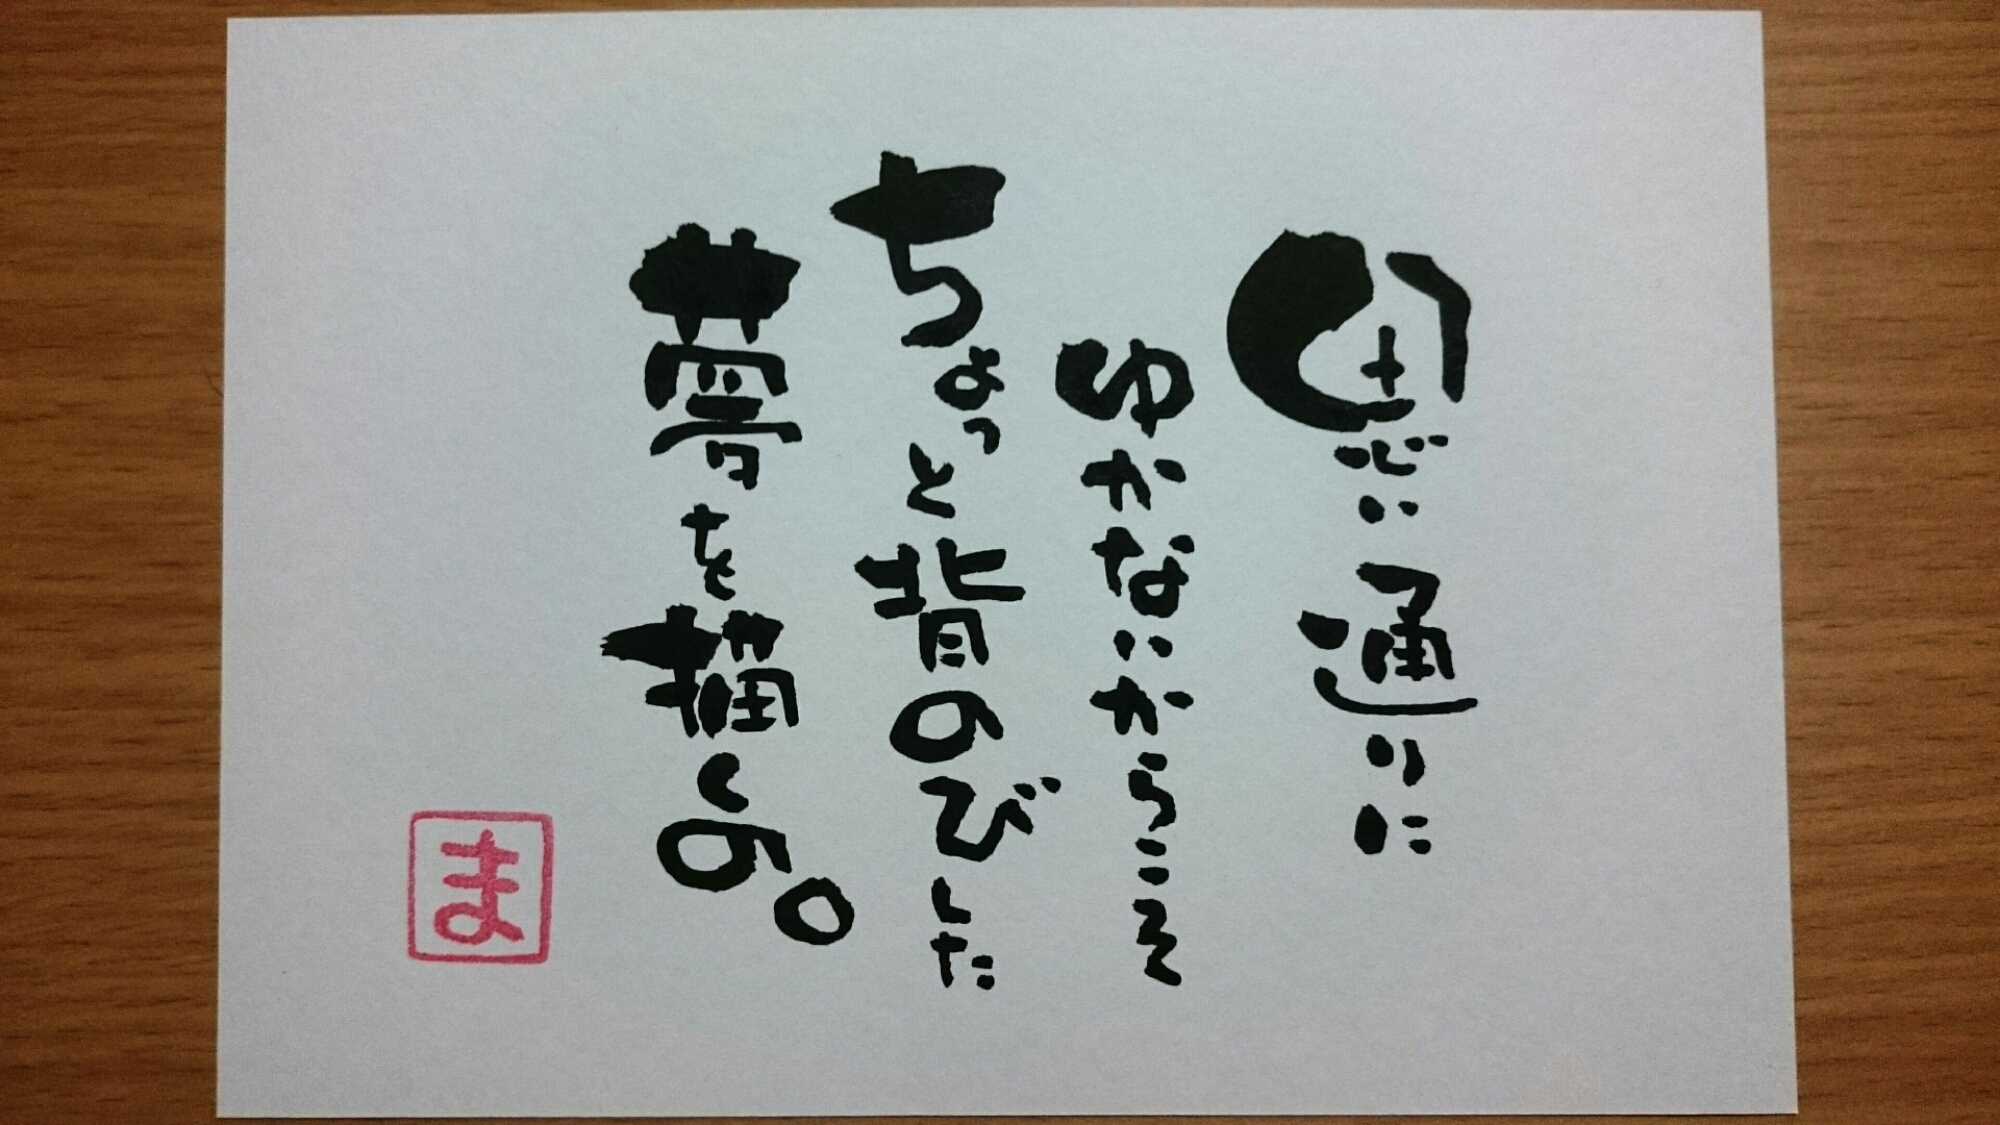 思い通りに
ゆかないからこそ
ちょっと背のびした
夢を描くの。
ま